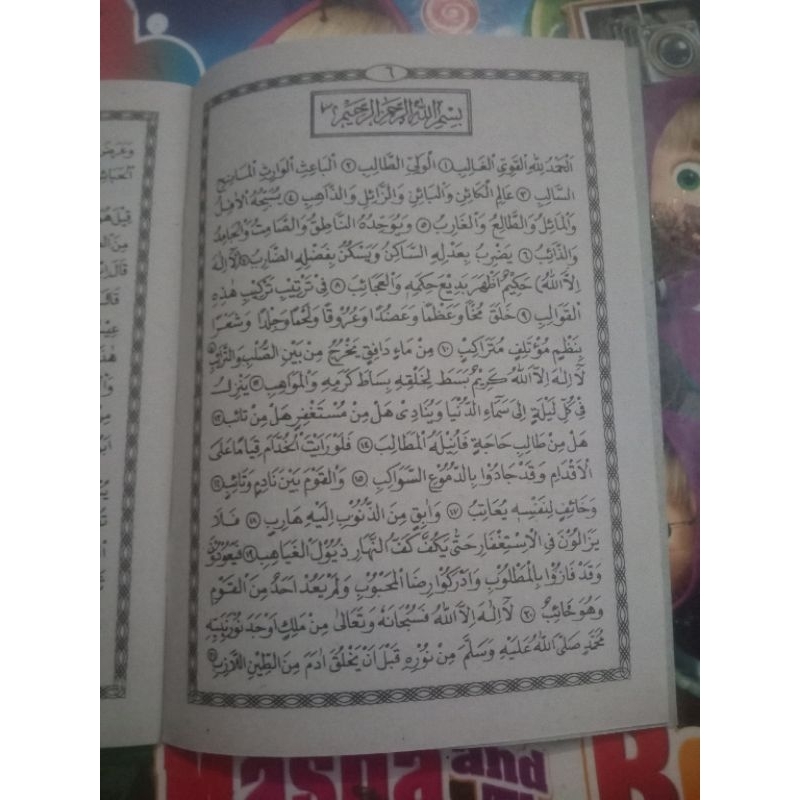 ٦
بِسْمِ اللهِ الرَّحْمٰنِ الرَّحِيْمِ
اَلْحَمْدُ لِلّٰهِ الْقَوِيِّ الْغَالِبِ ۝١ اَلْوَلِيِّ الطَّالِبِ ۝٢ اَلْبَاعِثِ الْوَارِثِ الْمَانِحِ
السَّالِبِ ۝٣ عَالِمِ الْكَائِنِ وَالْبَائِنِ وَالزَّائِلِ وَالذَّاهِبِ ۝٤ يُسَبِّحُهُ الْاٰفِلُ
وَالْمَائِلُ وَالطَّالِعُ وَالْغَارِبُ ۝٥ وَيُوَحِّدُهُ النَّاطِقُ وَالصَّامِتُ وَالْجَامِدُ
وَالذَّائِبُ ۝٦ يَضْرِبُ بِعَدْلِهِ السَّاكِنُ وَيَسْكُنُ بِفَضْلِهِ الضَّارِبُ (لَا اِلٰهَ
اِلَّا اللهُ) حَكِيْمٌ اَظْهَرَ بَدِيْعَ حِكَمِهِ وَالْعَجَائِبَ ۝٨ فِيْ تَرْتِيْبِ تَرْكِيْبِ هٰذِهِ
الْقَوَالِبِ ۝٩ خَلَقَ مُخًّا وَعَظْمًا وَعَضُدًا وَعُرُوْقًا وَلَحْمًا وَجِلْدًا وَشَعْرًا
بِنَظْمٍ مُؤْتَلِفٍ مُتَرَاكِبٍ ۝١٠ مِنْ مَاءٍ دَافِقٍ يَخْرُجُ مِنْ بَيْنِ الصُّلْبِ وَالتَّرَائِبِ
لَا اِلٰهَ اِلَّا اللهُ كَرِيْمٌ بَسَطَ لِخَلْقِهِ بِسَاطَ كَرَمِهِ وَالْمَوَاهِبِ ۝١٢ يَنْزِلُ
فِيْ كُلِّ لَيْلَةٍ اِلَى سَمَاءِ الدُّنْيَا وَيُنَادِيْ هَلْ مِنْ مُسْتَغْفِرٍ هَلْ مِنْ تَائِبٍ ۝١٣
هَلْ مِنْ طَالِبِ حَاجَةٍ فَاُنِيْلَهُ الْمَطَالِبَ ۝١٤ فَلَوْ رَاَيْتَ الْخُدَّامَ قِيَامًا عَلَى
الْاَقْدَامِ وَقَدْ جَادُوْا بِالدُّمُوْعِ السَّوَاكِبِ ۝١٥ وَالْقَوْمُ بَيْنَ نَادِمٍ وَتَائِبٍ ۝١٦
وَخَائِفٍ لِنَفْسِهِ يُعَاتِبُ ۝١٧ وَاٰبِقٍ مِنَ الذُّنُوْبِ اِلَيْهِ هَارِبٍ ۝١٨ فَلَا
يَزَالُوْنَ فِي الْاِسْتِغْفَارِ حَتّٰى يَكُفَّ كَفُّ النَّهَارِ ذُيُوْلَ الْغَيَاهِبِ ۝١٩ فَيَعُوْدُوْنَ
وَقَدْ فَازُوْا بِالْمَطْلُوْبِ وَاَدْرَكُوْا رِضَا الْمَحْبُوْبِ وَلَمْ يَعُدْ اَحَدٌ مِنَ الْقَوْمِ
وَهُوَ خَائِبٌ ۝٢٠ لَا اِلٰهَ اِلَّا اللهُ فَسُبْحَانَهُ وَتَعَالٰى مِنْ مَلِكٍ اَوْجَدَ نُوْرَ نَبِيِّهِ
مُحَمَّدٍ صَلَّى اللهُ عَلَيْهِ وَسَلَّمَ مِنْ نُوْرِهِ قَبْلَ اَنْ يَخْلُقَ اٰدَمَ مِنَ الطِّيْنِ اللَّازِبِ
Masha
and